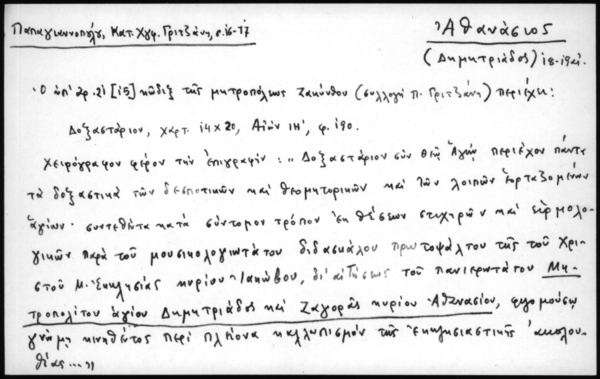 Παπαγιαννοπούλου, Κατ. Χγφ. Γριτζάνη, σ. 16-17
Ἀθανάσιος
(Δημητριάδος) 18-19 αἰ.
Ὁ ὑπ' ἀρ. 21 [15] κῶδιξ τῆς μητροπόλεως Ζακύνθου (συλλογὴ Π. Γριτζάνη) περιέχει:
Δοξαστάριον, χαρτ. 14 x 20, Αἰὼν ΙΗ', φ. 190.
Χειρόγραφον φέρον τὴν ἐπιγραφήν: „Δοξαστάριον σὺν θεῷ Ἁγίῳ περιέχον πάντα
τὰ δοξαστικὰ τῶν δεσποτικῶν καὶ θεομητορικῶν καὶ τῶν λοιπῶν ἑορταζομένων
ἁγίων· συντεθέντα κατὰ σύντομον τρόπον ἐκ θέσεων στιχηρῶν καὶ εἱρμολο-
γικῶν παρὰ τοῦ μουσικολογιωτάτου διδασκάλου πρωτοψάλτου τῆς τοῦ Χρι-
στοῦ Μ. Ἐκκλησίας κυρίου Ἰακώβου, δι' αἰτήσεως τοῦ πανιερωτάτου Μη-
τροπολίτου ἁγίου Δημητριάδος καὶ Ζαγορᾶς κυρίου Ἀθανασίου, φιλομούσῳ
γνώμῃ κινηθέντος περὶ πλείονα καλλωπισμὸν τῆς ἐκκλησιαστικῆς ἀκολου-
θίας..."